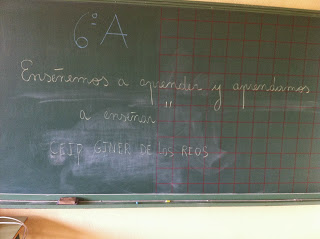 6º A
Enseñemos a aprender y aprendamos
a enseñar"
CEIP GINER DE LOS RIOS